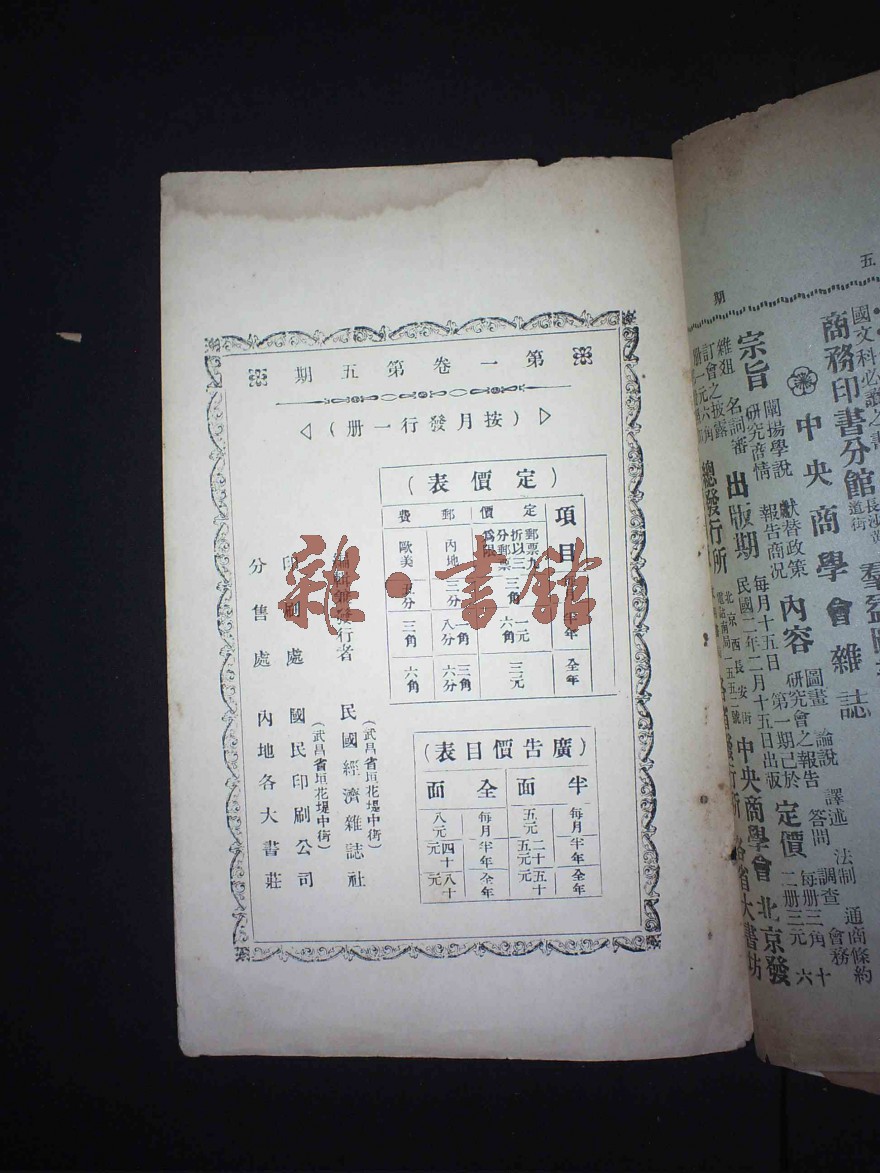 第一卷第五期
（按月發行一册）
（定價表）
項目
定價
郵費
郵票九折以三分郵票爲限
內地
歐美
每月
三角
三分
五分
半年
一元六角
一角八分
三角
全年
三元
三角六分
六角
（廣告價目表）
半面
全面
每月
五元
每月
八元
半年
二十五元
半年
四十元
全年
五十元
全年
八十元
編輯兼發行者
民國經濟雜誌社
（武昌省垣花堤中街）
印刷處
國民印刷公司
（武昌省垣花堤中街）
分售處
內地各大書莊
雜·書館
五
期
國文科必讀之書
商務印書分館
中央商學會雜誌
宗旨
闡揚學說
獻替政策
研究商情
報告商況
內容
圖畫
論說
譯述
法制
通商條約
研究會之報告
答問
調查
會務
雜俎
名詞審
訂會之披露
出版期
每月十五日
民國二年二月十五日出版
第一期已於
定價
每册三角
十二册三元六
總發行所
北京西長安街
中央商學會
北京發
各省大書坊